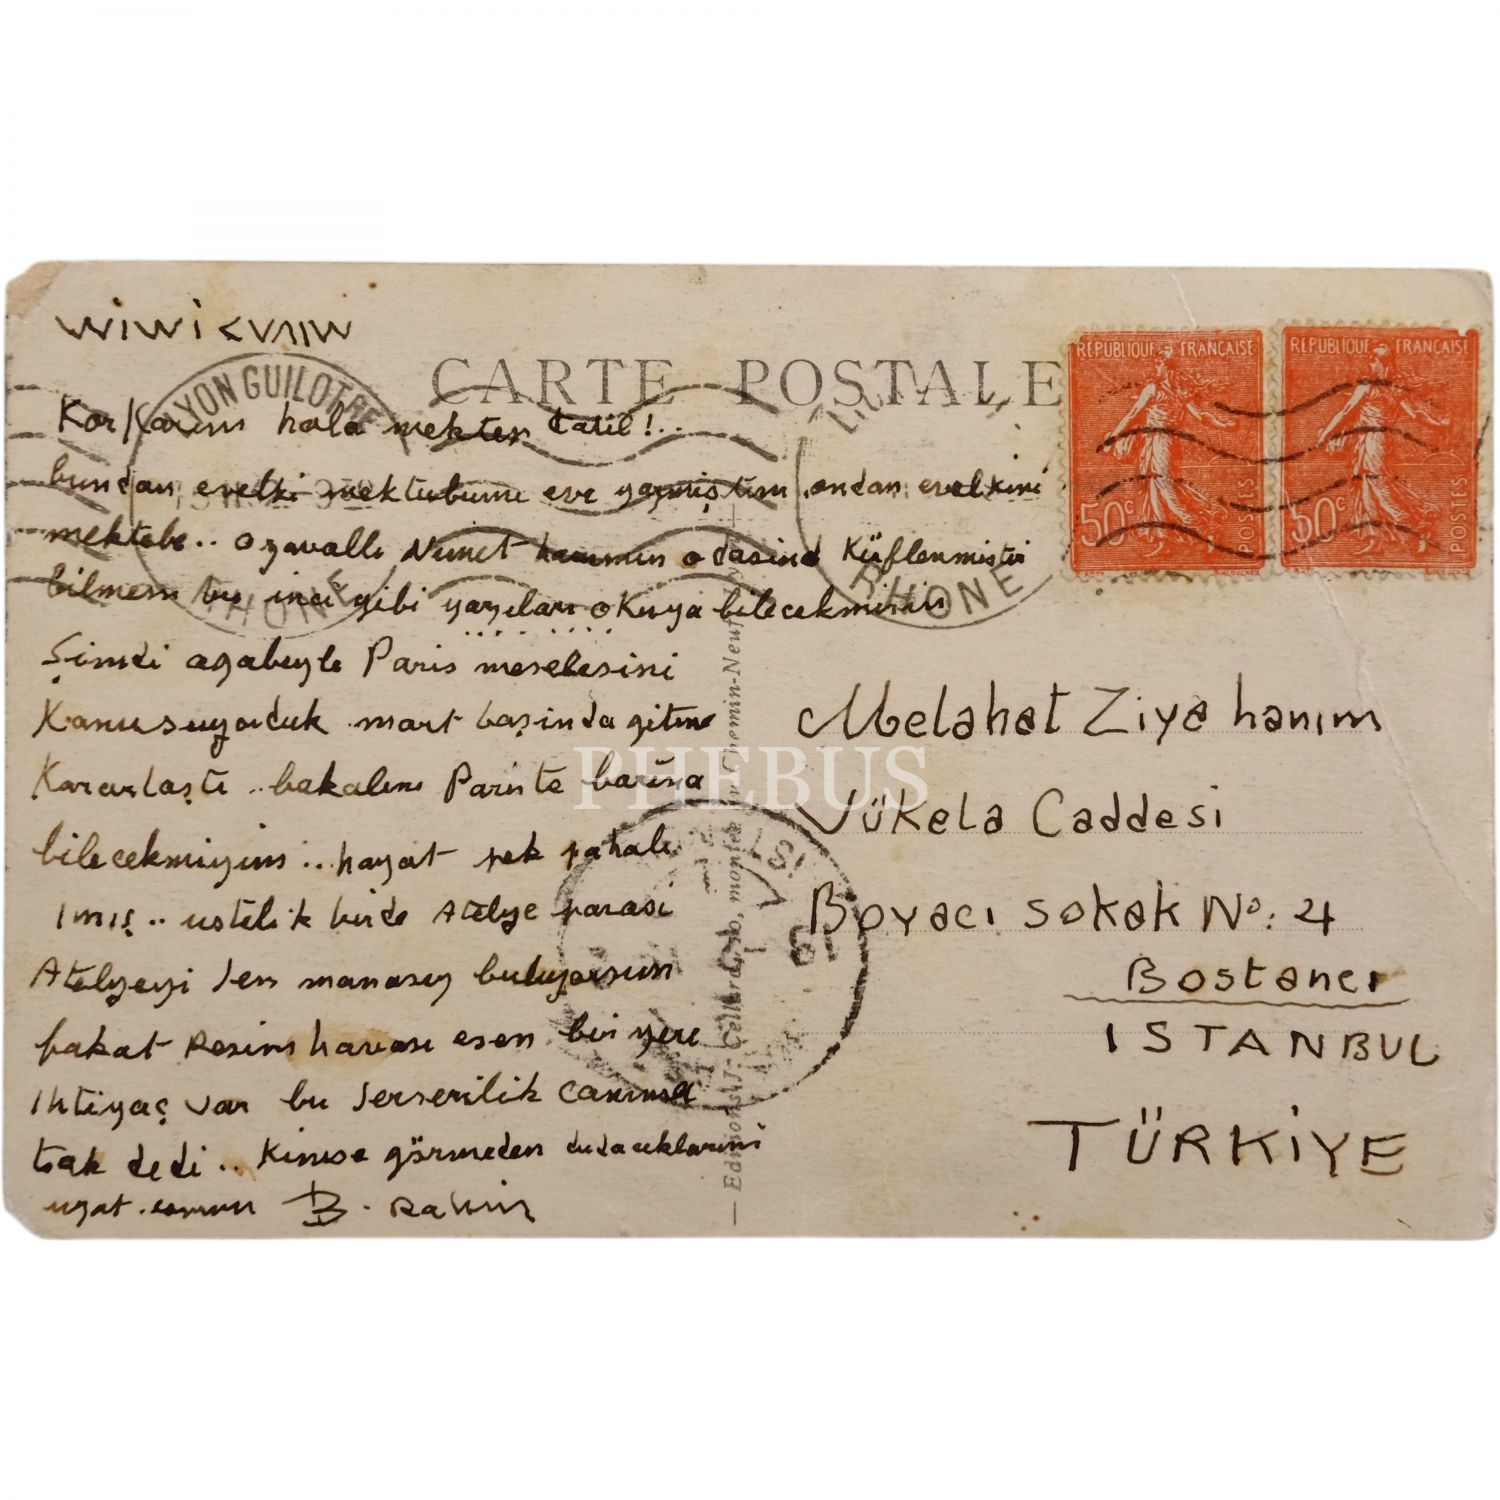 wiwi
CARTE POSTALE
RÉPUBLIQUE FRANÇAISE
50c
POSTES
RÉPUBLIQUE FRANÇAISE
50c
POSTES
LYON GUILOTRE
RHONE
RHONE
Korkarım hala mekten tatil!..
bundan evelki mektubumu eve yazmıştım ondan evelkini
mektebe.. o zavallı hanımın odasind Küflenmiştir
bilmem bu inci gibi yazıları okuya bilecekmisin
Şimdi agabeyle Paris meselesini
Konusuyorduk mart başinda gitme
Kararlaştı .. bakalım Pariste barına
bilecekmiyim .. hayat pek pahalı
ımış.. ustelik birde Atelye parasi
Atelyeyi sen manasız buluyorsun
fakat Resim havası esen bir yere
ihtiyaç var bu serserilik canıma
tak dedi .. Kimse görmeden dudacıklarını
uzat B. Rahmi
Melahat Ziya hanım
Vükela Caddesi
Boyacı sokak No: 4
Bostancı
ISTANBUL
TÜRKİYE
PHEBUS